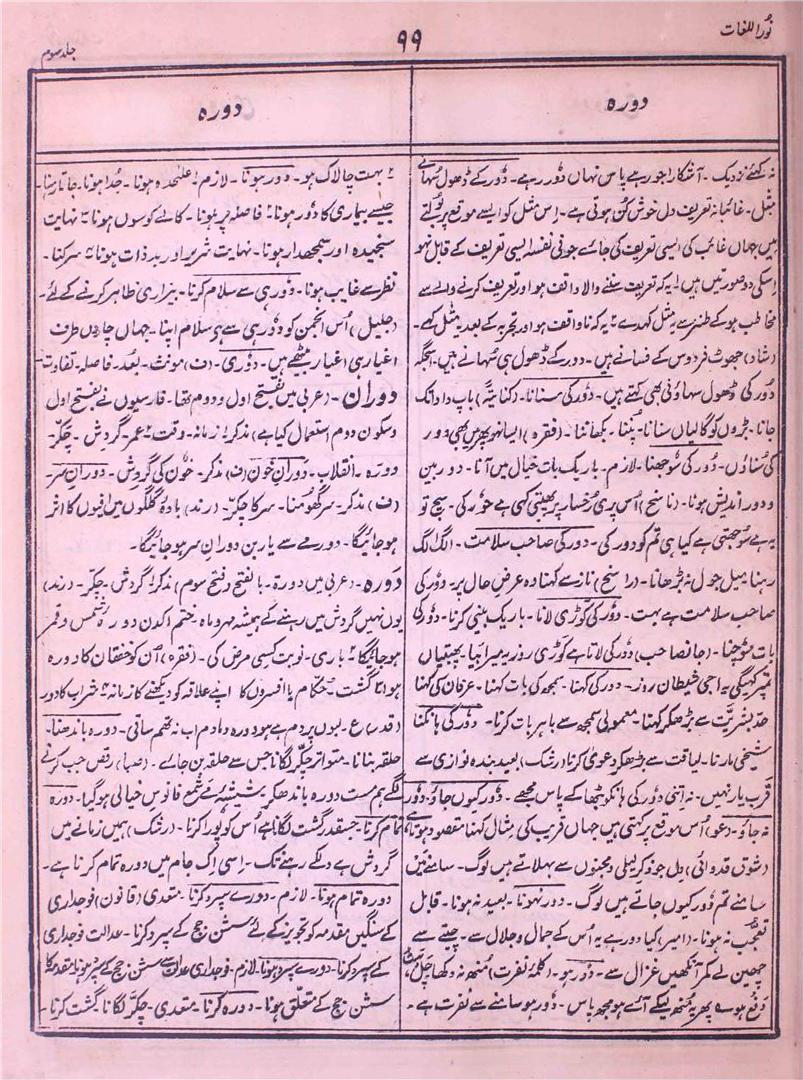 نُورُ اللغات
۹۹
جلد سوم
دورہ
نہ کہئے نزدیک ۔ آشکارا جو رہے پاس نہاں دُور رہے ۔ دُور کے ڈھول سُہانے
مثل ۔ غائبانہ تعریف دل خوش کُن ہوتی ہے ۔ اِس مثل کو ایسے موقع پر بولتے
ہیں جہاں غائب کی ایسی تعریف کی جائے جو فی نفسہ ایسی تعریف کے قابل نہو
اسکی دو صورتیں ہیں ۱ یہ کہ تعریف سننے والا واقف ہو اور تعریف کرنے والے سے
مخاطب ہو کے طنز سے یہ مثل کہدے ۲ یہ کہ ناواقف ہو اور تجربہ کے بعد یہ مثل کہے ۔
(شاد) جھوٹ فردوس کے فسانے ہیں ۔ دور کے ڈھول ہی سُہانے ہیں ۔ اسجگہ
دُور کی ڈھول سہاؤنی بھی کہتے ہیں ۔ دُور کی سنانا ۔ (کنایتہً) باپ دادا تک
جانا ۔ بڑوں کو گالیاں سنانا ۔ پُننا ۔ بکھاننا ۔ (فقرہ) ایسا نہو پھر میں بھی دور
کی سُناؤں ۔ دُور کی سُوجھنا ۔ لازم ۔ باریک بات خیال میں آنا ۔ دوربین
و دور اندیش ہونا ۔ (ناسخ) اُس پری رُخسار پر پھبتی کسی ہے حور کی ۔ سچ تو
یہ ہے سُوجھتی ہے کیا ہی تم کو دور کی ۔ دور کی صاحب سلامت ۔ الگ الگ
رہنا میل جول نہ بڑھانا ۔ (راسخ) ناز سے کہنا وہ عرض حال پر ۔ دور کی
صاحب سلامت ہے بہت ۔ دُور کی کوڑی لانا ۔ باریک بینی کرنا ۔ دُور کی
بات سوچنا ۔ (جانصاحب) دُور کی لاتا ہے کوڑی روز یہ میرا پیا ۔ پھبتیاں
تمپر کہیگی یہ اجی شیطان روز ۔ دور کی کہنا ۔ سمجھ کی بات کہنا ۔ عرفان کی کہنا
حد بشریّت سے بڑھکر کہنا ۔ معمولی سمجھ سے باہر بات کرنا ۔ دُور کی ہانکنا
شیخی مارنا ۔ لیاقت سے بڑھکر دعویٰ کرنا (رشک) بعید بندہ نوازی سے
قرب یار نہیں ۔ نہ اِتنی دُور کی ہانکو بٹھا کے پاس مجھے ۔ دُور کیوں جاؤ ۔ دُور
نہ جاؤ ۔ (عو) اُس موقع پر کہتی ہیں جہاں قریب کی مثال کہنا مقصود ہوتا ہے
(شوق قدوائی) دل جو ذکرِ لیلی و مجنوں سے بہلاتے ہیں لوگ ۔ سامنے ہیں
سامنے تم دُور کیوں جاتے ہیں لوگ ۔ دور نہونا ۔ بعید نہ ہونا ۔ قابل
تعجّب نہ ہونا ۔ (امیر) کیا دور ہے یہ اُس کے جمال و جلال سے ۔ چیتے سے
چھین لے کمر آنکھیں غزال سے ۔ دُور ہو ۔ (کلمۂ نفرت) مُنھ نہ دکھا چل
دفع ہو ۔ پھر یہ مُنھ لیکے آئے ہو مجھ پاس ۔ دُور ہو سامنے سے نفرت ہے ۔
دورہ
۲ بہت چالاک ہو ۔ دور ہونا ۔ لازم ۱ علیحدہ ہونا ۔ جُدا ہونا ۔ جاتا رہنا ۔
جیسے بیماری کا دُور ہونا ۲ فاصلہ پر ہونا ۔ کالے کوسوں ہونا ۳ نہایت
سنجیدہ اور سمجھدار ہونا ۔ نہایت شریر اور بد ذات ہونا ۴ سرکنا ۔
نظر سے غایب ہونا ۔ دُور ہی سے سلام کرنا ۔ بیزاری ظاہر کرنے کے لئے ۔
(جلیل) اُس انجمن کو دُور ہی سے ہو سلام اپنا ۔ جہاں چاروں طرف
اغیار ہی اغیار بیٹھے ہیں ۔ دُوری ۔ (ف) مونث ۔ بُعد ۔ فاصلہ ۔ تفاوت ۔
دوران ۔ (عربی میں بفتح اول و دوم تھا ۔ فارسیوں نے بفتح اول
و سکون دوم استعمال کیا ہے) مذکر ۱ زمانہ ۔ وقت ۲ عمر ۔ گردش ۔ چکّر ۔
دورہ ۔ انقلاب ۔ دورانِ خون (ف) مذکر ۔ خون کی گردش ۔ دورانِ سر
(ف) مذکر ۔ سر گھومنا ۔ سر کا چکّر ۔ (رند) بادۂ گلگوں میں افیوں کا اثر
ہو جائیگا ۔ دور مے سے یار بن دورانِ سر ہو جائیگا ۔
دَورہ ۔ (عربی میں دورۃ ۔ بالفتح و فتح سوم) مذکر ۱ گردش ۔ چکّر ۔ (رند)
یوں نہیں گردش میں رہنے کے ہمیشہ مہر و ماہ ۔ ختم اکدن دورۂ شمس و قمر
ہو جائیگا ۲ باری ۔ نوبت کسی مرض کی ۔ (فقرہ) اُن کو خفقان کا دورہ
ہوا ۳ گشت ۔ حکّام یا افسروں کا اپنے علاقہ کو دیکھنے کا زمانہ ۴ شراب کا دور
(قدسی) ع ۔ لبوں پر دم ہے ہو دورہ دمادم اب نہ تھم ساقی ۔ دورہ باندھنا ۔
حلقہ بنانا ۔ متواتر چکّر لگانا جس سے حلقہ بن جائے ۔ (صبا) رقص جب کرنے
لگے ہم مست دورہ باندھکر ۔ شیشۂ مے شمع فانوس خیالی ہو گیا ۔ دورہ
تمام کرنا ۔ جسقدر گشت لگانا ہے اُس کو پورا کرنا ۔ (رشک) ہمیں زمانے میں
گردش ہے دلکے رہنے تک ۔ اِسی اک جام میں دورہ تمام کرنا ہے ۔
دورہ تمام ہونا ۔ لازم ۔ دورے سپرد کرنا ۔ متعدی (قانون) فوجداری
کے سنگین مقدمہ کو تجویز کے لئے سشن جج کے سپرد کرنا ۔ عدالت فوجداری
کے سپرد کرنا ۔ دورے سپرد ہونا ۔ لازم ۔ فوجداری عدالت سے سشن جج کے سپرد ہونا ۔ مقدمہ کا
سشن جج کے متعلّق ہونا ۔ دورہ کرنا ۔ متعدی ۔ چکّر لگانا ۔ گشت کرنا